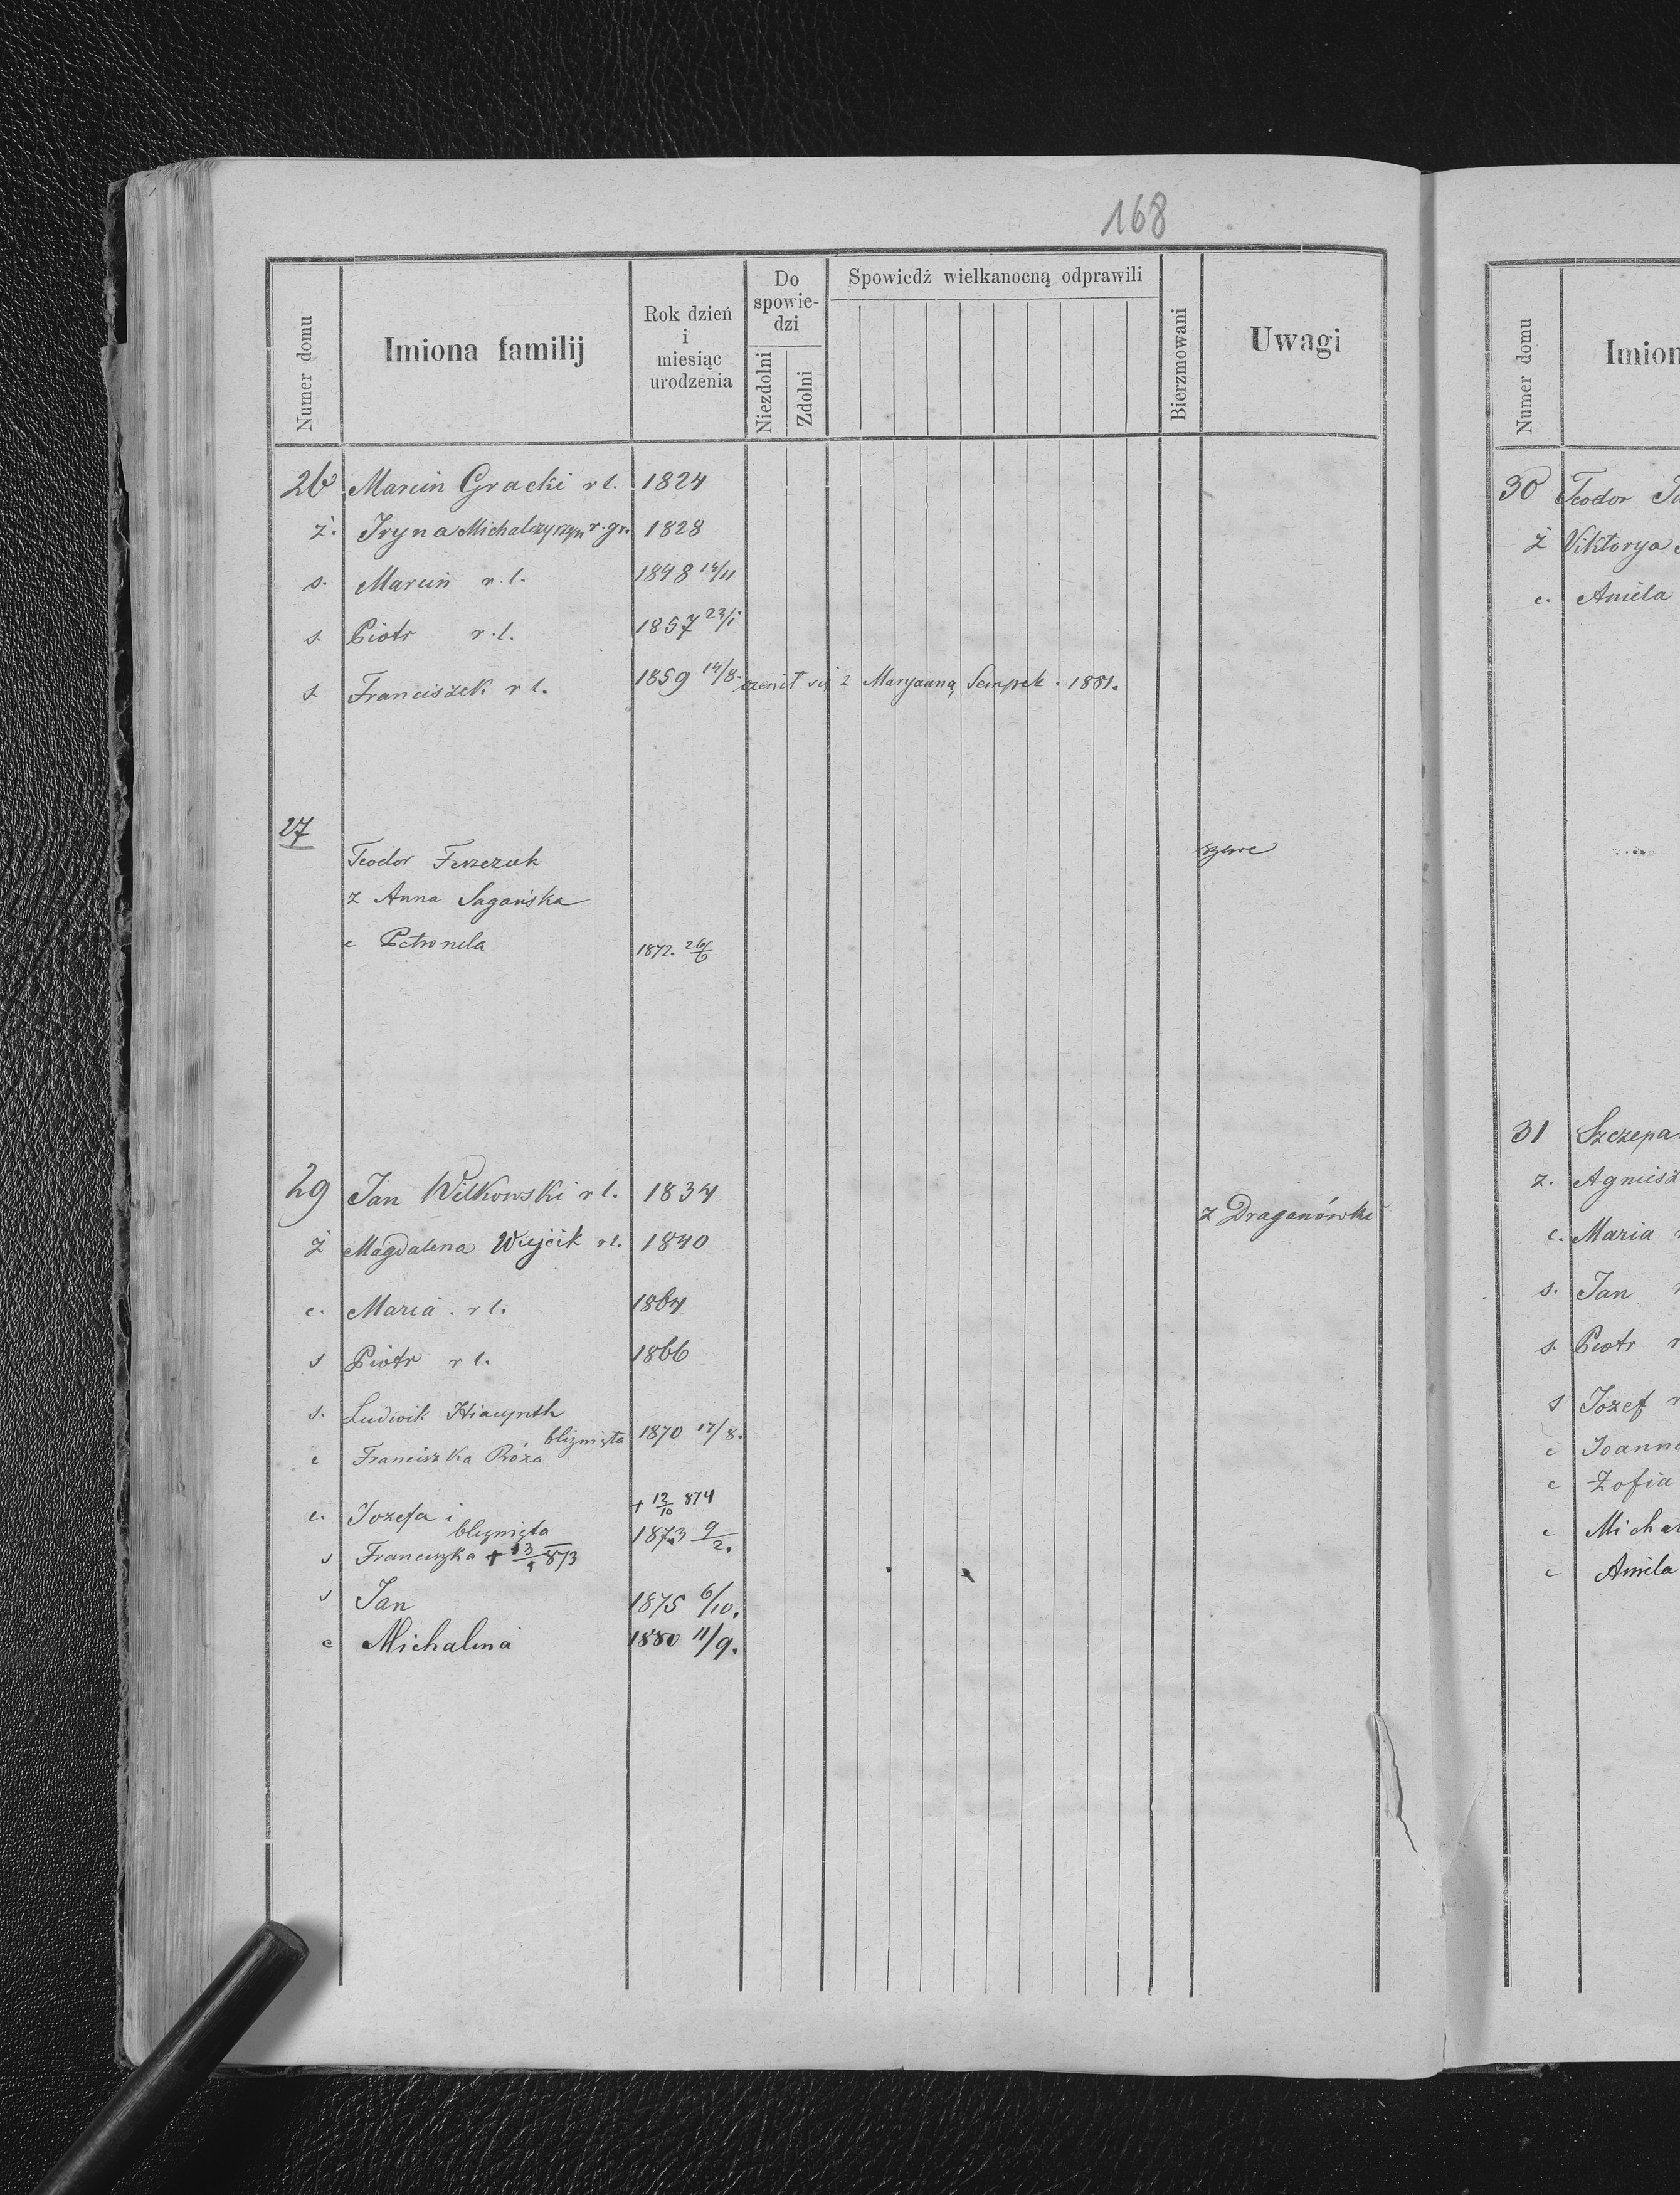 168
Numer domu Imiona familij Rok dzień i miesiąc urodzenia Do spowiedzi Niezdolni Zdolni Spowiedź wielkanocną odprawili Bierzmowani Uwagi
26 Marcin Gracki r l. 1824
ż. Iryna Michalczyszyn r. gr. 1828
s. Marcin r. l. 1848 /11
s. Piotr r. l. 1857 23/1
s Franciszek r l. 1859 14/8. żenił się z Maryanną Sempek. 1881.
27
Teodor
z Anna Sagańska
c Petronela 1872. 26/6
29 Jan Wilkowski r l. 1834
z Draganówki
ż Magdalena Wujcik r l. 1840
c. Maria. r l. 1864
s Piotr r l. 1866
s. Ludwik Hiacynth
bliznięta 1870 17/8.
c Franciszka Róża
+ 12/10 874
c. Jozefa i
bliznięta 1873 9/2.
s Franciszka + 873
s Jan 1875 6/10.
c Michalina 1880 11/9.
Numer domu Imion
30 Teodor
ż Viktorya
c. Aniela
31 Szczepa
z. Agniesz
c. Maria
s. Jan
s. Piotr
s Jozef
c Joanna
c Zofia
c Micha
c Aniela